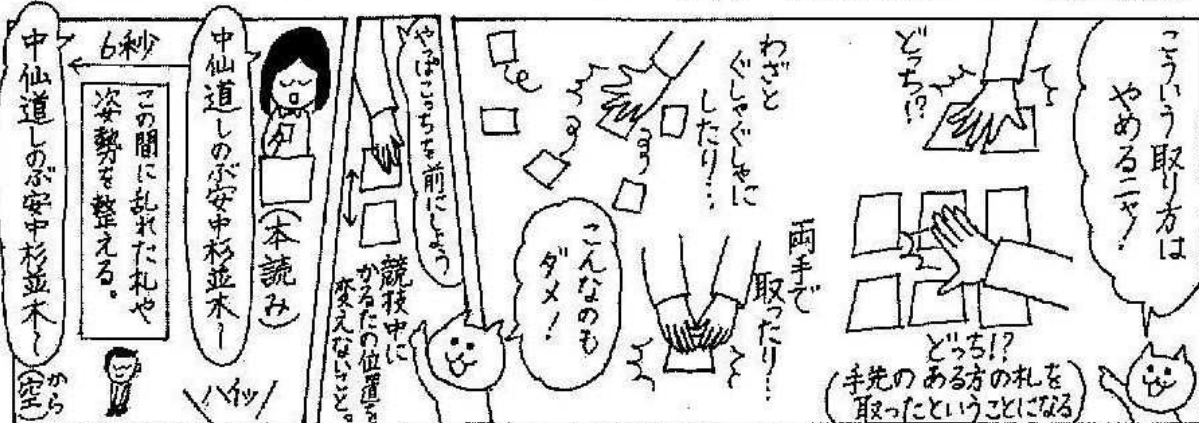 こういう取り方は
やめるニャ!
どっち!?
どっち!?
(手先のある方の札を
取ったということになる)
わざと
ぐしゃぐしゃに
したり…
両手で
取ったり…
こんなのも
ダメ!
やっぱこっちを前にしよう
競技中に
かるたの位置を
変えないこと。
(本読み)
中仙道しのぶ安中杉並木〜
ハイッ
6秒
この間に乱れた札や
姿勢を整える。
中仙道しのぶ安中杉並木〜
から
空